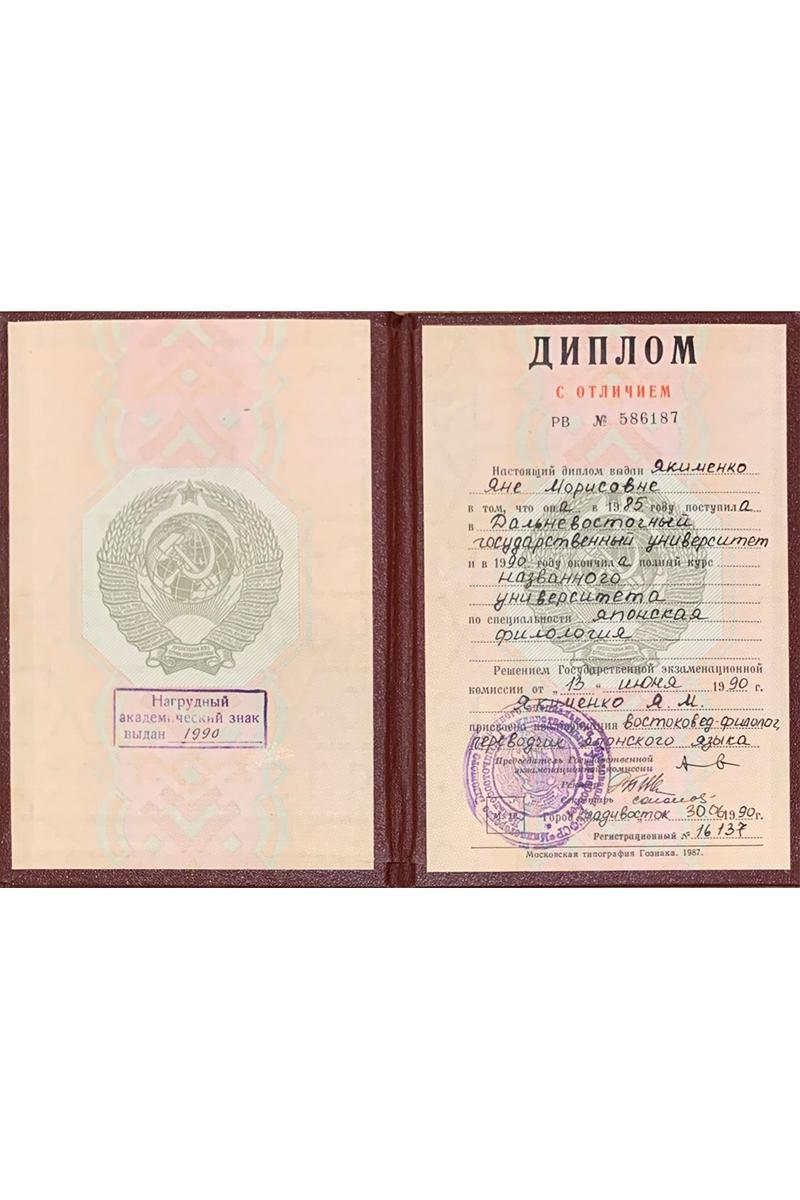 ПРОЛЕТАРИИ ВСЕХ
СТРАН, СОЕДИНЯЙТЕСЬ!
Нагрудный
академический знак
выдан 1990
ДИПЛОМ
С ОТЛИЧИЕМ
РВ № 586187
Настоящий диплом выдан Якименко
Яне Морисовне
в том, что она в 1985 году поступила
в Дальневосточный
государственный университет
и в 1990 году окончила полный курс
названного
университета
по специальности японская
филология
Решением Государственной экзаменационной
комиссии от „13“ июня 1990 г.
Якименко Я. М.
присвоена квалификация востоковед-филолог,
переводчик японского языка
Председатель Государственной
экзаменационной комиссии
Ректор
Секретарь
М. П. Город Владивосток 30 06 1990 г.
Регистрационный № 16137
Московская типография Гознака. 1987.